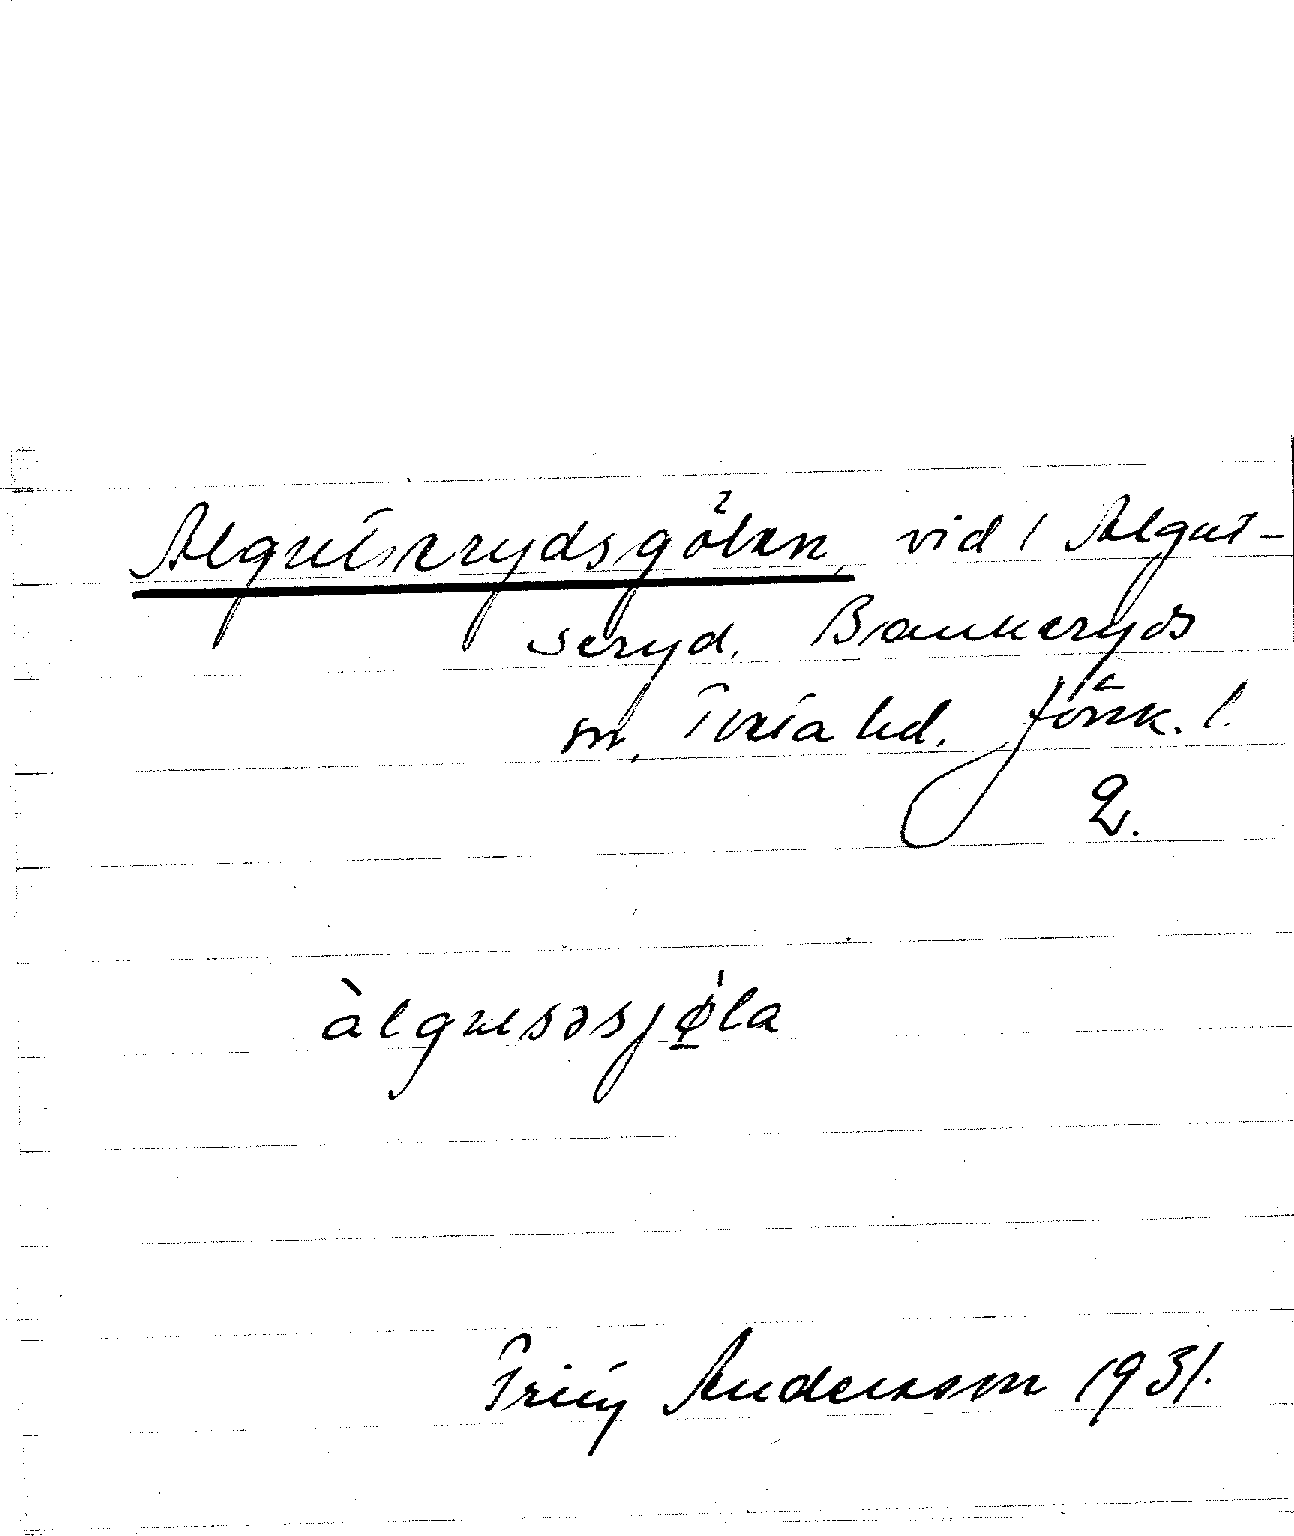 Algutserydsgölen, vid l Algut-
seryd. Bankeryds
sn, Tveta hd. Jönk. l.
2.
àlgutsəsjø̀la
Andersson 1931.